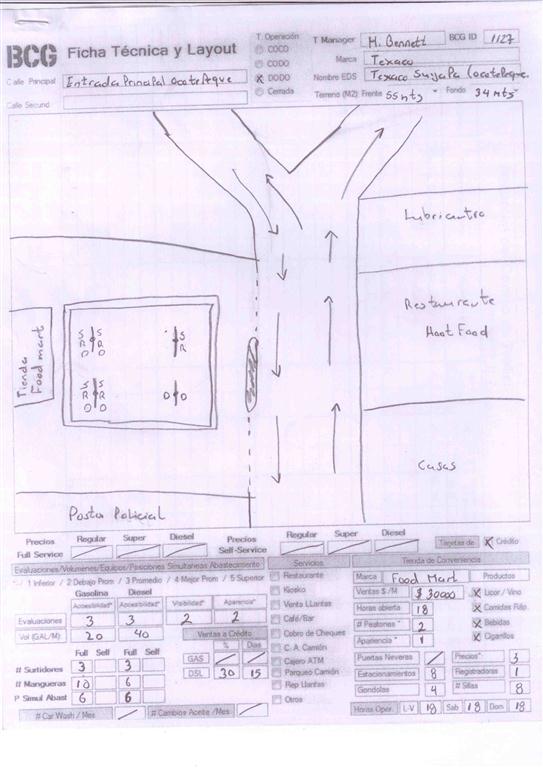 BCG Ficha Técnica y Layout
T. Operación
COCO
CODO
DODO
Cerrada
T Manager H. Bennett BCG ID 1127
Marca Texaco
Nombre EDS Texaco Suyapa Ocotepeque.
Terreno (M2): Frente 55 mts Fondo 34 mts
Calle Principal Entrada Principal Ocotepeque
Calle Secund
Lubricentro
Restaurante
Hoot Food
Casas
Tienda
Food mart
S S
R R
D D
S
R
S S
R R
D D
D D
Posta Policial
Precios Regular Super Diesel
Full Service
Precios Regular Super Diesel
Self-Service
Tarjetas de X Crédito
Evaluaciones/Volumenes/Equipos/Posiciones Simultaneas Abastecimiento
1 Inferior / 2 Debajo Prom / 3 Promedio / 4 Mejor Prom / 5 Superior
Gasolina Diesel
Accesibilidad* Accesibilidad* Visibilidad* Apariencia*
Evaluaciones 3 3 2 2
Vol (GAL/M) 20 40
Ventas a Crédito
% Dias
GAS
DSL 30 15
Full Self Full Self
# Surtidores 3 3
# Mangueras 10 6
P Simul Abast 6 6
# Car Wash / Mes
# Cambios Aceite /Mes
Servicios
Restaurante
Kiosko
Venta LLantas
Café/Bar
Cobro de Cheques
C. A. Camión
Cajero ATM
Parqueo Camión
Rep Llantas
Otros
Tienda de Conveniencia
Marca Food Mart Productos
Ventas $ /M $ 30000 X Licor / Vino
Horas abierta 18 X Comidas Ráp.
# Peatones * 2 X Bebidas
Apariencia * 1 X Cigarillos
Puertas Neveras Precios* 3
Estacionamientos 8 Registradoras 1
Gondolas 4 # Sillas 8
Horas Oper. L-V 18 Sab 18 Dom 18